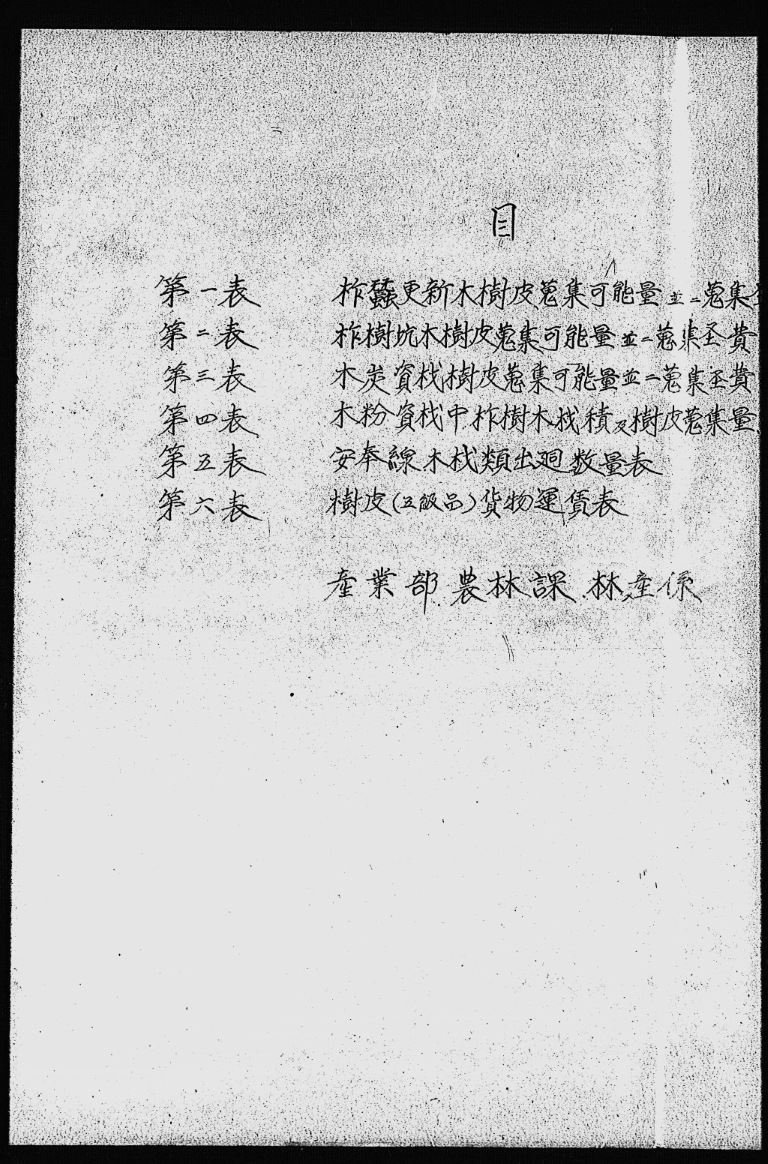 目
第一表 柞蚕更新木樹皮蒐集可能量並ニ蒐集
第二表 柞樹坑木樹皮蒐集可能量並ニ蒐集圣費
第三表 木炭資材樹皮蒐集可能量並ニ蒐集圣費
第四表 木粉資材中柞樹木材積及樹皮蒐集量
第五表 安奉線木材類出廻数量表
第六表 樹皮(五級品)貨物運賃表
産業部農林課林産係